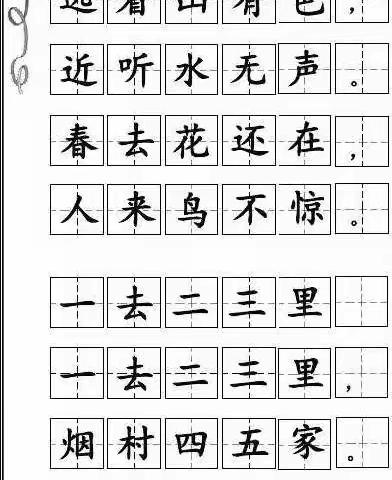 远看山有色，
近听水无声。
春去花还在，
人来鸟不惊。
一去二三里
一去二三里，
烟村四五家。